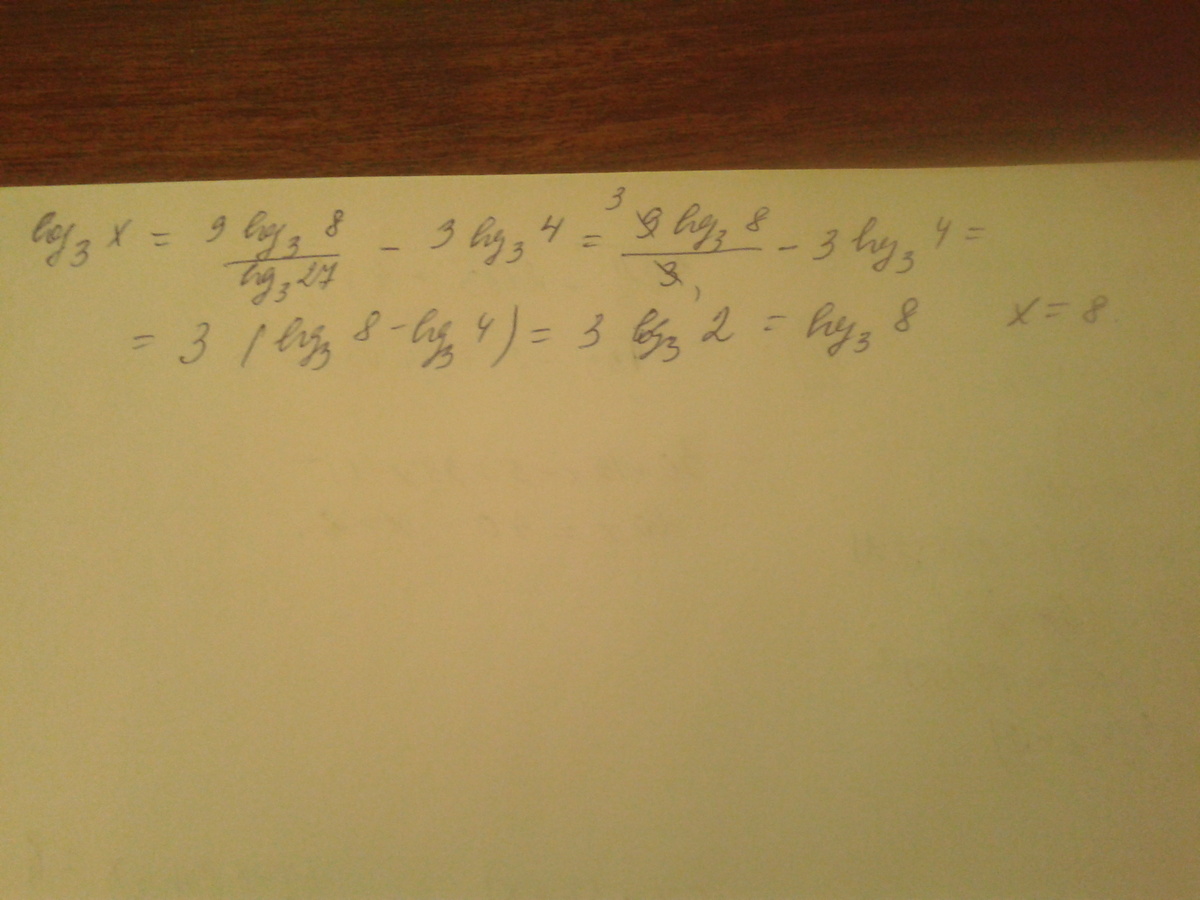 log₃ x = 9 log₃ 8 / log₃ 27 - 3 log₃ 4 = ³ 9 log₃ 8 / 3₁ - 3 log₃ 4 =
= 3 (log₃ 8 - log₃ 4) = 3 log₃ 2 = log₃ 8 x = 8.